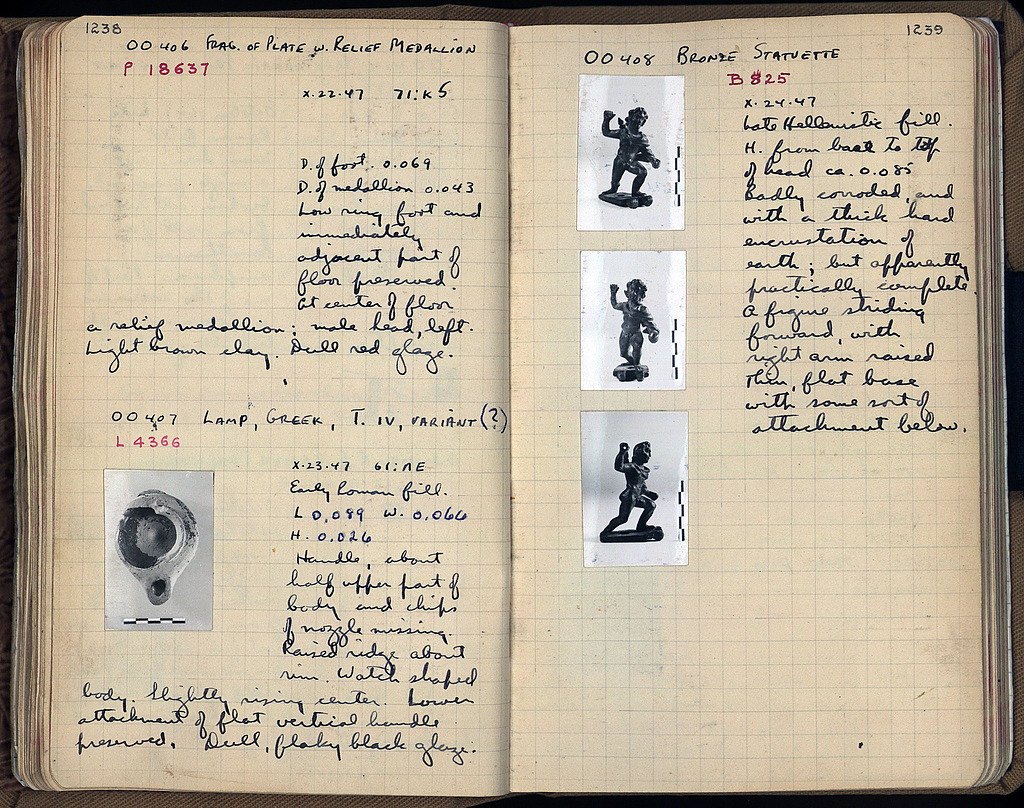 1238
OO 406 FRAG. OF PLATE W. RELIEF MEDALLION
P 18637
X.22.47 71:K5
D. of foot. 0.069
D. of medallion 0.043
Low ring foot and
immediately
adjacent part of
floor preserved.
At center of floor
a relief medallion: male head, left.
Light brown clay. Dull red glaze.
OO 407 LAMP, GREEK, T. IV, VARIANT (?)
L 4366
X.23.47 61:ΛΕ
Early Roman fill.
L 0,089 W. 0,066
H. 0,026
Handle, about
half upper part of
body and chips
of nozzle missing.
Raised ridge about
rim. Watch shaped
body. Slightly rising center. Lower
attachment of flat vertical handle
preserved. Dull, flaky black glaze.
1239
OO 408 BRONZE STATUETTE
B 825
X.24.47
Late Hellenistic fill.
H. from base to top
of head ca. 0.085
Badly corroded, and
with a thick hard
encrustation of
earth; but apparently
practically complete.
A figure striding
forward, with
right arm raised
Thin, flat base
with some sort of
attachment below.